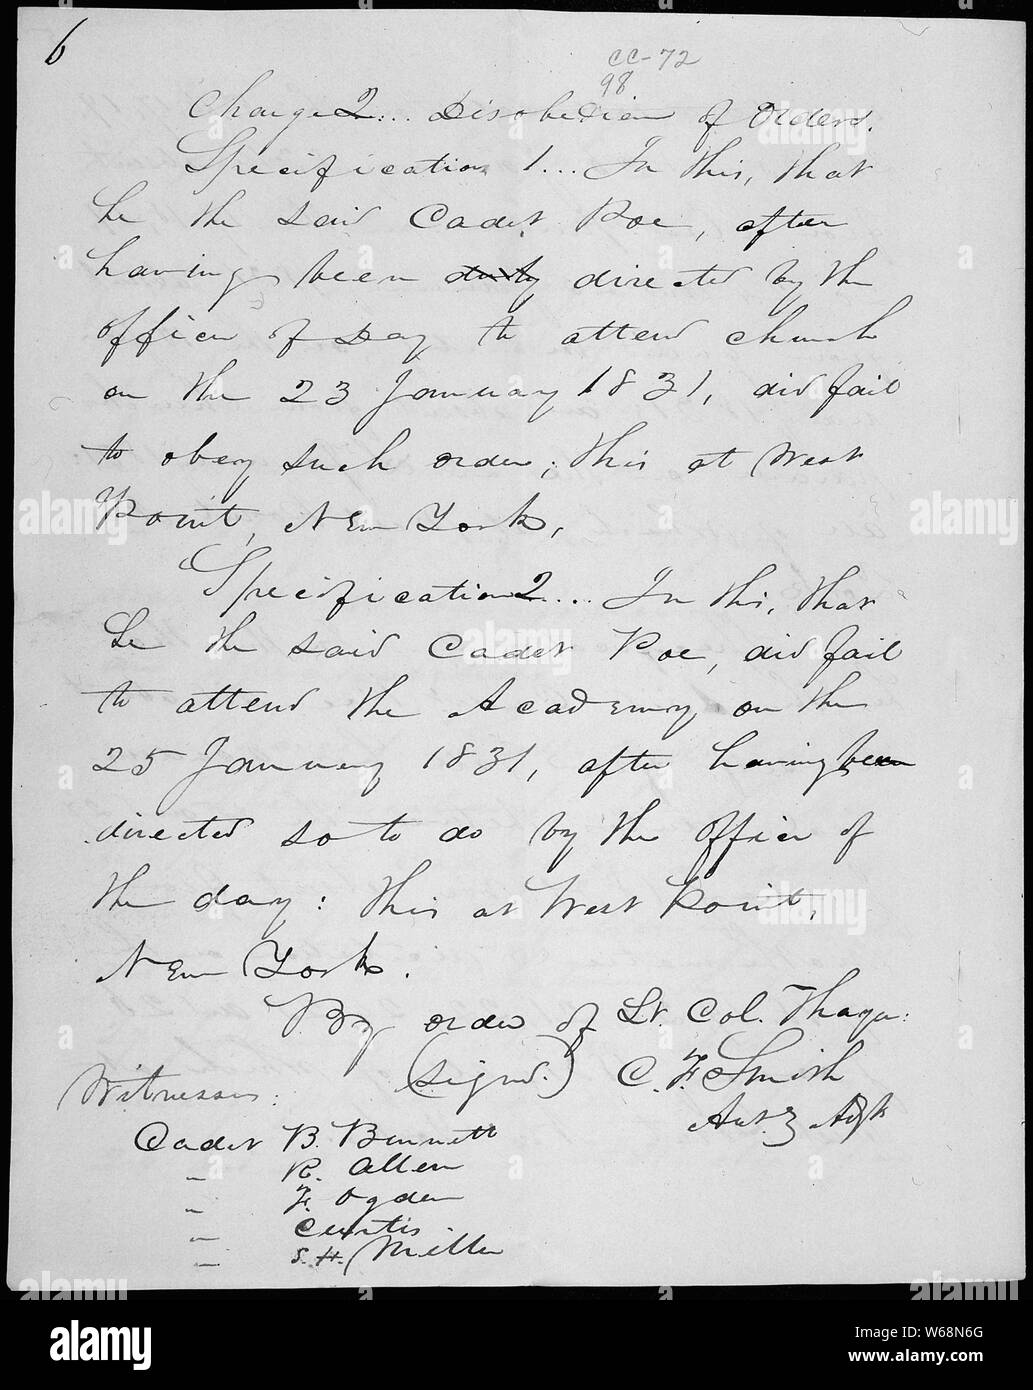 6
CC-72
98
Charge 2... Disobedience of Orders.
Specification 1... In this, that
he the said Cadet Poe, after
having been duly directed by the
officer of Day to attend church
on the 23 January 1831, did fail
to obey such order; this at West
Point, New York.
Specification 2... In this, that
he the said Cadet Poe, did fail
to attend the Academy on the
25 January 1831, after having been
directed so to do by the officer of
the day: this at West Point,
New York.
By order of Lt. Col. Thayer:
(signd.) C. F. Smith
Witnesses:
Cadet B. Bennett
" R. Allen
" F. Ogden
" Curtis
" S. H. Miller
alamy
a
alamy
Image ID: W68N6G
www.alamy.com